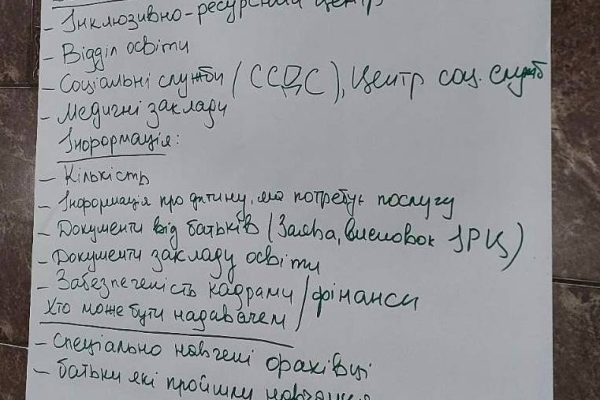 - Інклюзивно-ресурсний центр
- Відділ освіти
- Соціальні служби (ССДС), Центр соц. служб
- Медичні заклади
Інформація:
- Кількість
- Інформація про дитину, яка потребує послугу
- Документи від батьків (Заява, висновок ІРЦ)
- Документи закладу освіти
- Забезпеченість кадрами/фінанси
Хто може бути надавачем/
- Спеціально навчені фахівці
- батьки які пройшли навчання